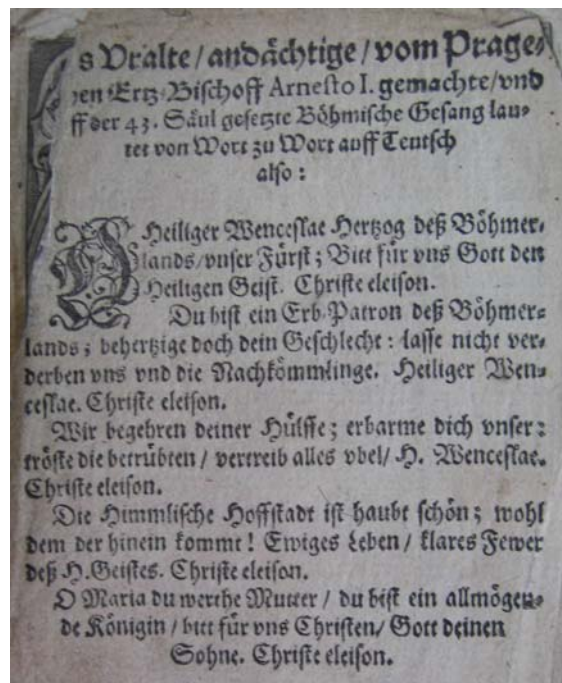 s Vralte / andächtige / vom Prage⸗
hen Ertz⸗Bischoff Arnesto I. gemachte / vnd
ff der 43. Säul gesetzte Böhmische Gesang lau⸗
tet von Wort zu Wort auff Teutsch
also :
O Heiliger Wenceslae Hertzog deß Böhmer⸗
lands / vnser Fürst ; Bitt für vns Gott den
Heiligen Geist. Christe eleison.
Du bist ein Erb⸗Patron deß Böhmer⸗
lands ; behertzige doch dein Geschlecht : lasse nicht ver⸗
derben vns vnd die Nachkömmlinge. Heiliger Wen⸗
ceslae. Christe eleison.
Wir begehren deiner Hülffe ; erbarme dich vnser :
tröste die betrübten / vertreib alles vbel / H. Wenceslae.
Christe eleison.
Die Himmlische Hoffstadt ist haubt schön ; wohl
dem der hinein kommt ! Ewiges Leben / klares Fewer
deß H. Geistes. Christe eleison.
O Maria du werthe Mutter / du bist ein allmögen⸗
de Königin / bitt für vns Christen / Gott deinen
Sohne. Christe eleison.